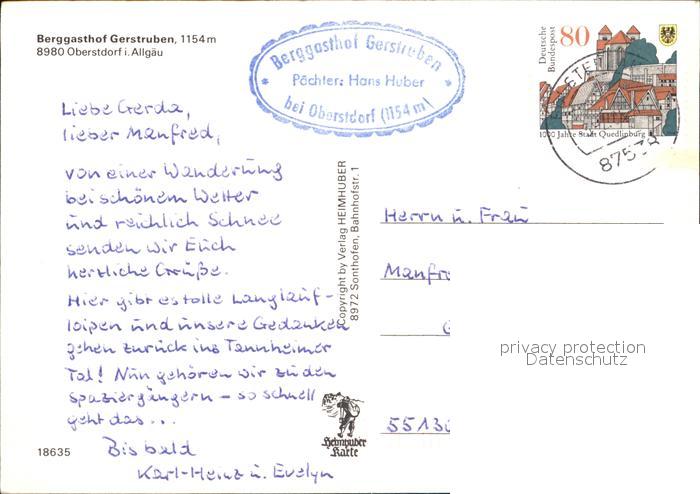 Berggasthof Gerstruben, 1154 m
8980 Oberstdorf i. Allgäu
Berggasthof Gerstruben
Pächter: Hans Huber
bei Oberstdorf (1154 m)
Deutsche
Bundespost
80
1000 Jahre Stadt Quedlinburg
87538
Liebe Gerda,
lieber Manfred,
von einer Wanderung
bei schönem Wetter
und reichlich Schnee
senden wir Euch
herzliche Grüße.
Hier gibt es tolle Langlauf-
loipen und unsere Gedanken
gehen zurück ins Tannheimer
Tal! Nun gehören wir zu den
Spaziergängern – so schnell
geht das...
Bis bald
Karl-Heinz u. Evelyn
Copyright by Verlag HEIMHUBER
8972 Sonthofen, Bahnhofstr. 1
Heimhuber
Karte
18635
Herrn u. Frau
Manfre
privacy protection
Datenschutz